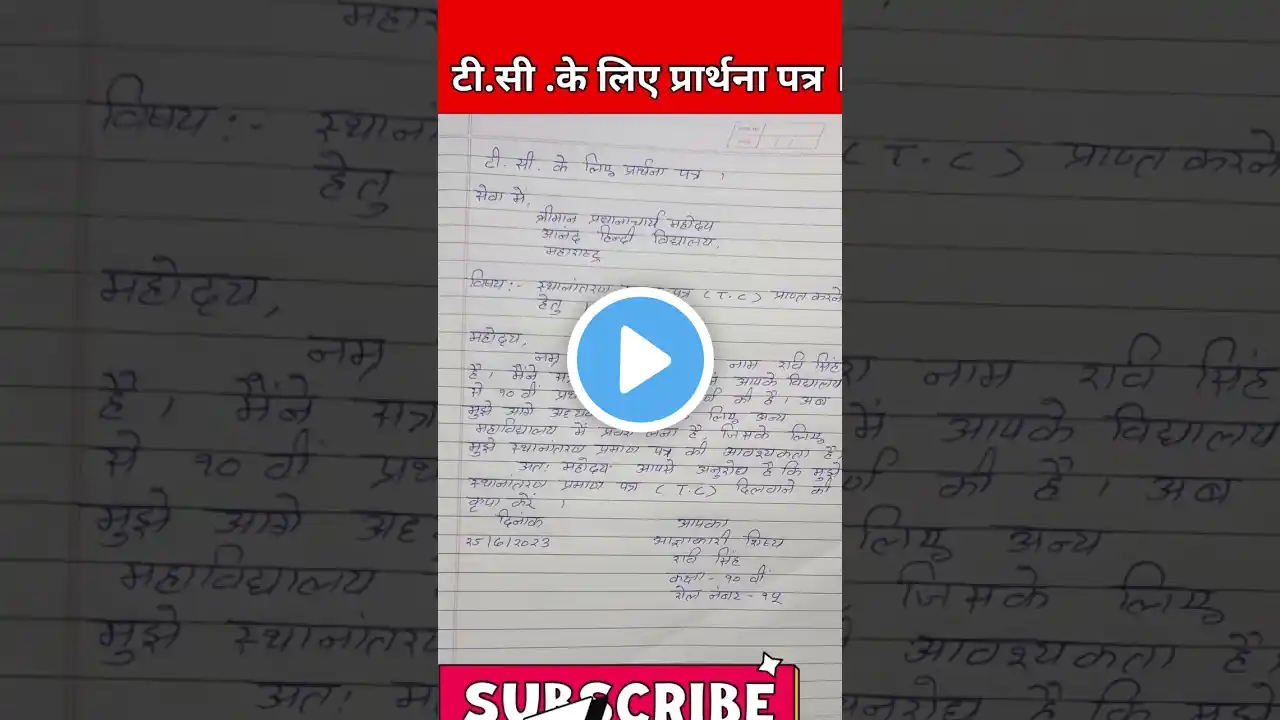 टी.सी .के लिए प्रार्थना पत्र ।
टी. सी. के लिए प्रार्थना पत्र ।
सेवा मे,
श्रीमान प्रधानाचार्य महोदय
आनंद हिन्दी विद्यालय,
महाराष्ट्र
विषय:- स्थानांतरण पत्र (T.C) प्राप्त करने
हेतु
महोदय,
नम्र नाम रवि सिंह
है। मैंने सत्र आपके विद्यालय
से १० वीं की है। अब
मुझे आगे लिए अन्य
महाविद्यालय में प्रवेश लेना है, जिसके लिए
मुझे स्थानांतरण प्रमाण पत्र की आवश्यकता है,
अतः महोदय आपसे अनुरोध है कि मुझे
स्थानांतरण प्रमाण पत्र (T.C) दिलवाने की
कृपा करें ।
दिनांक
२५/६/२०२३
आपका
आज्ञाकारी शिष्य
रवि सिंह
कक्षा - १० वीं
रोल नंबर - १५
SUBSCRIBE